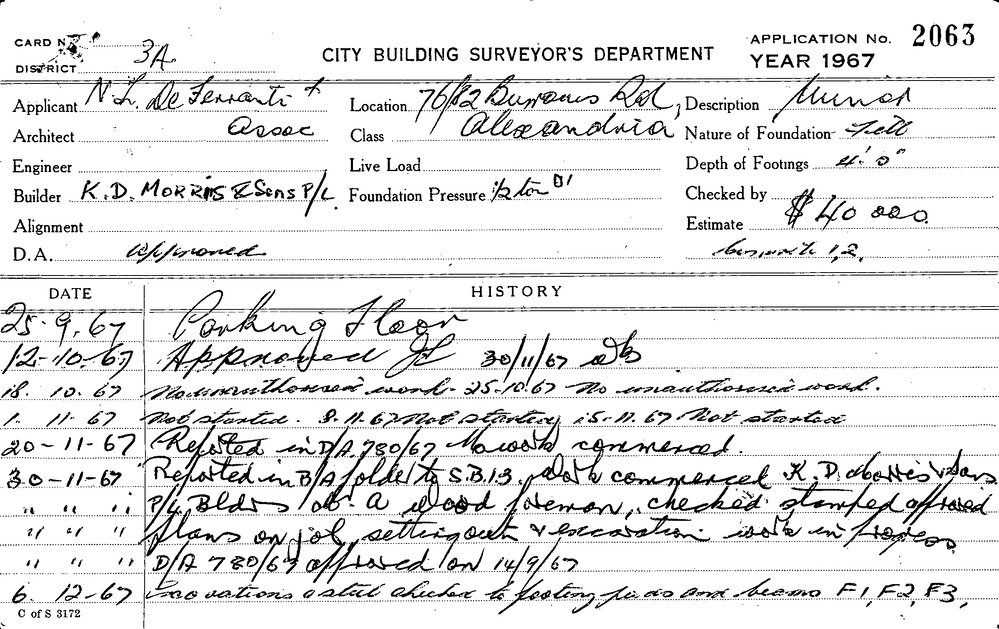 CARD No.
DISTRICT 3A
CITY BUILDING SURVEYOR'S DEPARTMENT
APPLICATION No. 2063
YEAR 1967
Applicant N.L. De Ferranti &
Location 76/82 Burrows Rd,
Description Minor
Architect Assoc
Class Alexandria
Nature of Foundation Fill
Engineer
Live Load
Depth of Footings 4' 0"
Builder K. D. MORRIS & Sons P/L.
Foundation Pressure ½ ton
Checked by
Alignment
Estimate $40 000.
D.A. Approved
1,2.
DATE HISTORY
25.9.67 Parking Floor
12-10-67 Approved 30/11/67
18.10.67 No unauthorised work. 25.10.67 No unauthorised work.
1.11.67 Not started. 8.11.67 Not started, 15.11.67 Not started
20-11-67 Reported in D/A 780/67 No work commenced.
30-11-67 Reported in B/A folder to S.B.13. Work commenced K. D. Morris & Sons
" " " P/L. Bldrs A Wood foreman, checked stamped approved
" " " plans on job, setting out & excavation work in progress.
" " " D/A 780/67 approved on 14/9/67
6.12-67 Excavations & steel checked to footing pads and beams F1, F2, F3,
C of S 3172